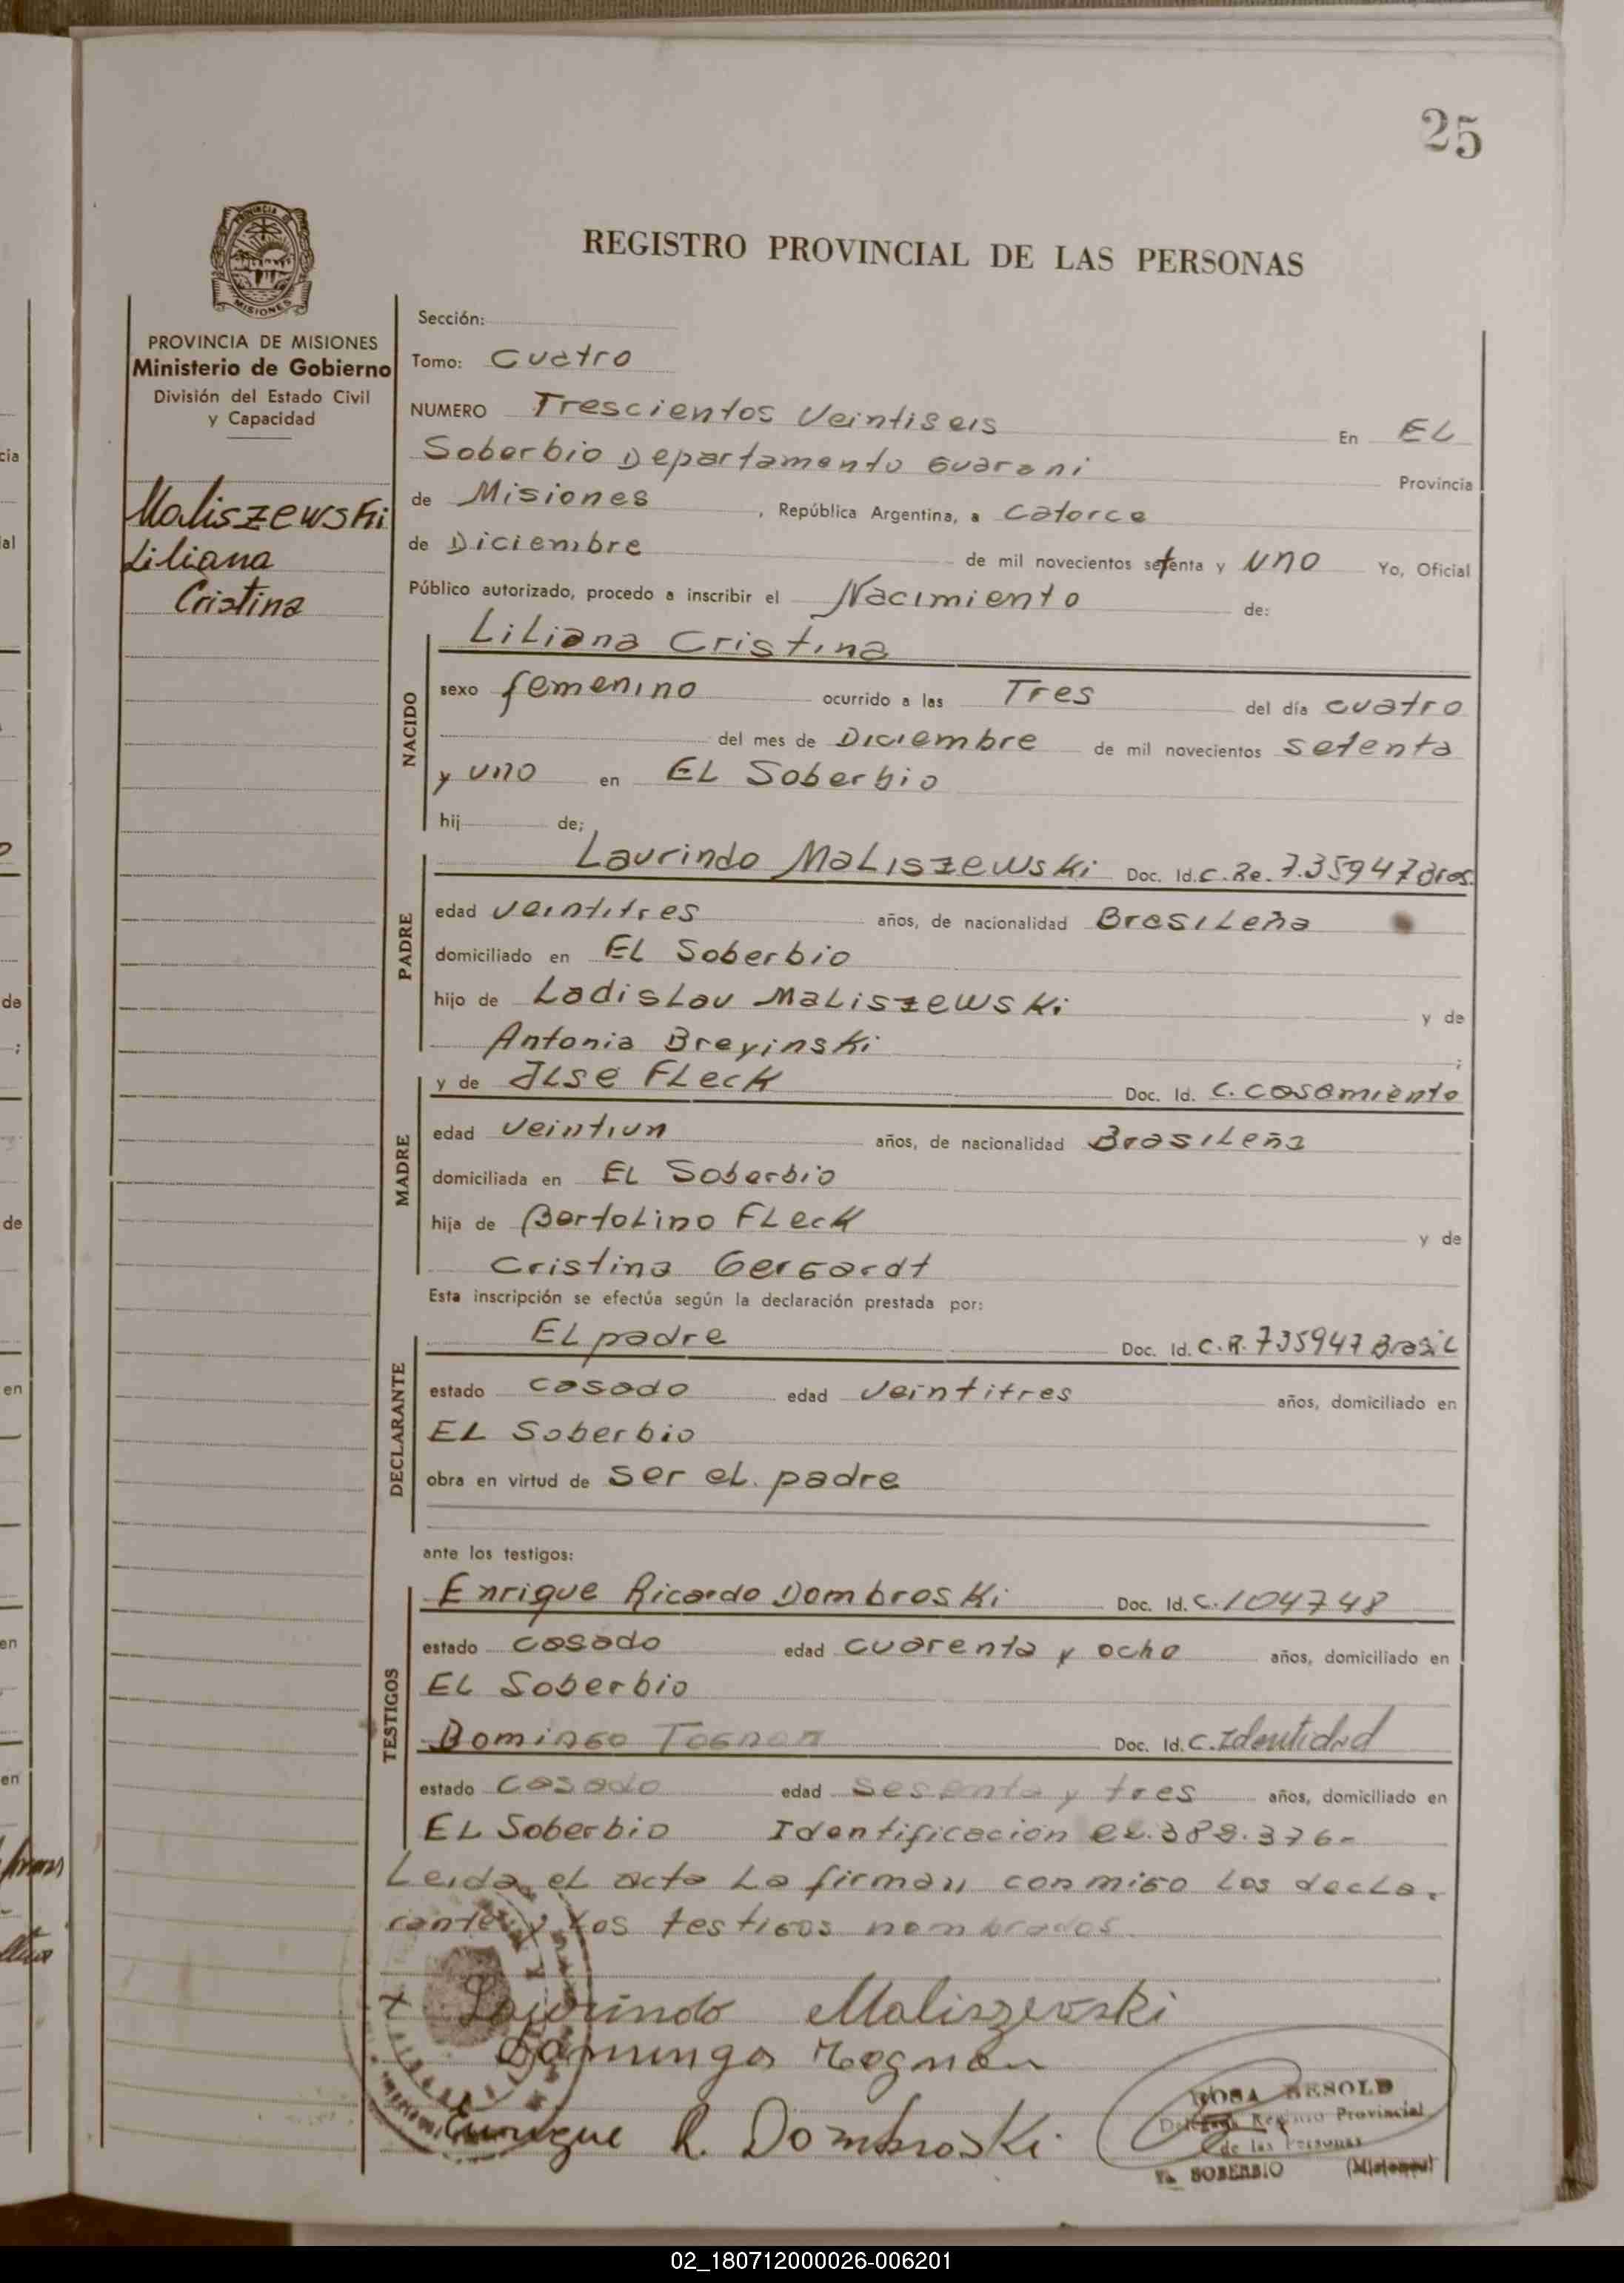 25
REGISTRO PROVINCIAL DE LAS PERSONAS
PROVINCIA DE MISIONES
Ministerio de Gobierno
División del Estado Civil
y Capacidad
Maliszewski
Liliana
Cristina
Sección:
Tomo: Cuatro
NUMERO Trescientos Veintiseis En EL
Soberbio Departamento Guarani Provincia
de Misiones, República Argentina, a Catorce
de Diciembre de mil novecientos setenta y uno Yo, Oficial
Público autorizado, procedo a inscribir el Nacimiento de:
NACIDO
Liliana Cristina
sexo femenino ocurrido a las Tres del día cuatro
del mes de Diciembre de mil novecientos setenta
y uno en EL Soberbio
hij de;
PADRE
Laurindo Maliszewski Doc. Id. C. Re. 7.35947 Bras.
edad veintitres años, de nacionalidad Brasileña
domiciliado en EL Soberbio
hijo de Ladislau Maliszewski y de
Antonia Breyinski ;
MADRE
y de Jlse Fleck Doc. Id. C. Casamiento
edad veintiun años, de nacionalidad Brasileña
domiciliada en EL Soberbio
hija de Bertolino Fleck y de
Cristina Gergardt
Esta inscripción se efectúa según la declaración prestada por:
DECLARANTE
EL padre Doc. Id. C.R. 735947 Brasil
estado casado edad veintitres años, domiciliado en
EL Soberbio
obra en virtud de ser el. padre
ante los testigos:
TESTIGOS
Enrique Ricardo Dombroski Doc. Id. C. 104748
estado casado edad cuarenta y ocho años, domiciliado en
EL Soberbio
Domingo Tognon Doc. Id. C. Identidad
estado casado edad sesenta y tres años, domiciliado en
EL Soberbio Identificacion 389.376-
Leida el acta la firman conmigo los decla-
rante y los testigos nombrados
x Laurindo Maliszevski
Domingo Tognon
Enrique R. Dombroski
ROSA BESOLD
Registro Provincial
de las Personas
SOBERBIO (Misiones)
02_180712000026-006201